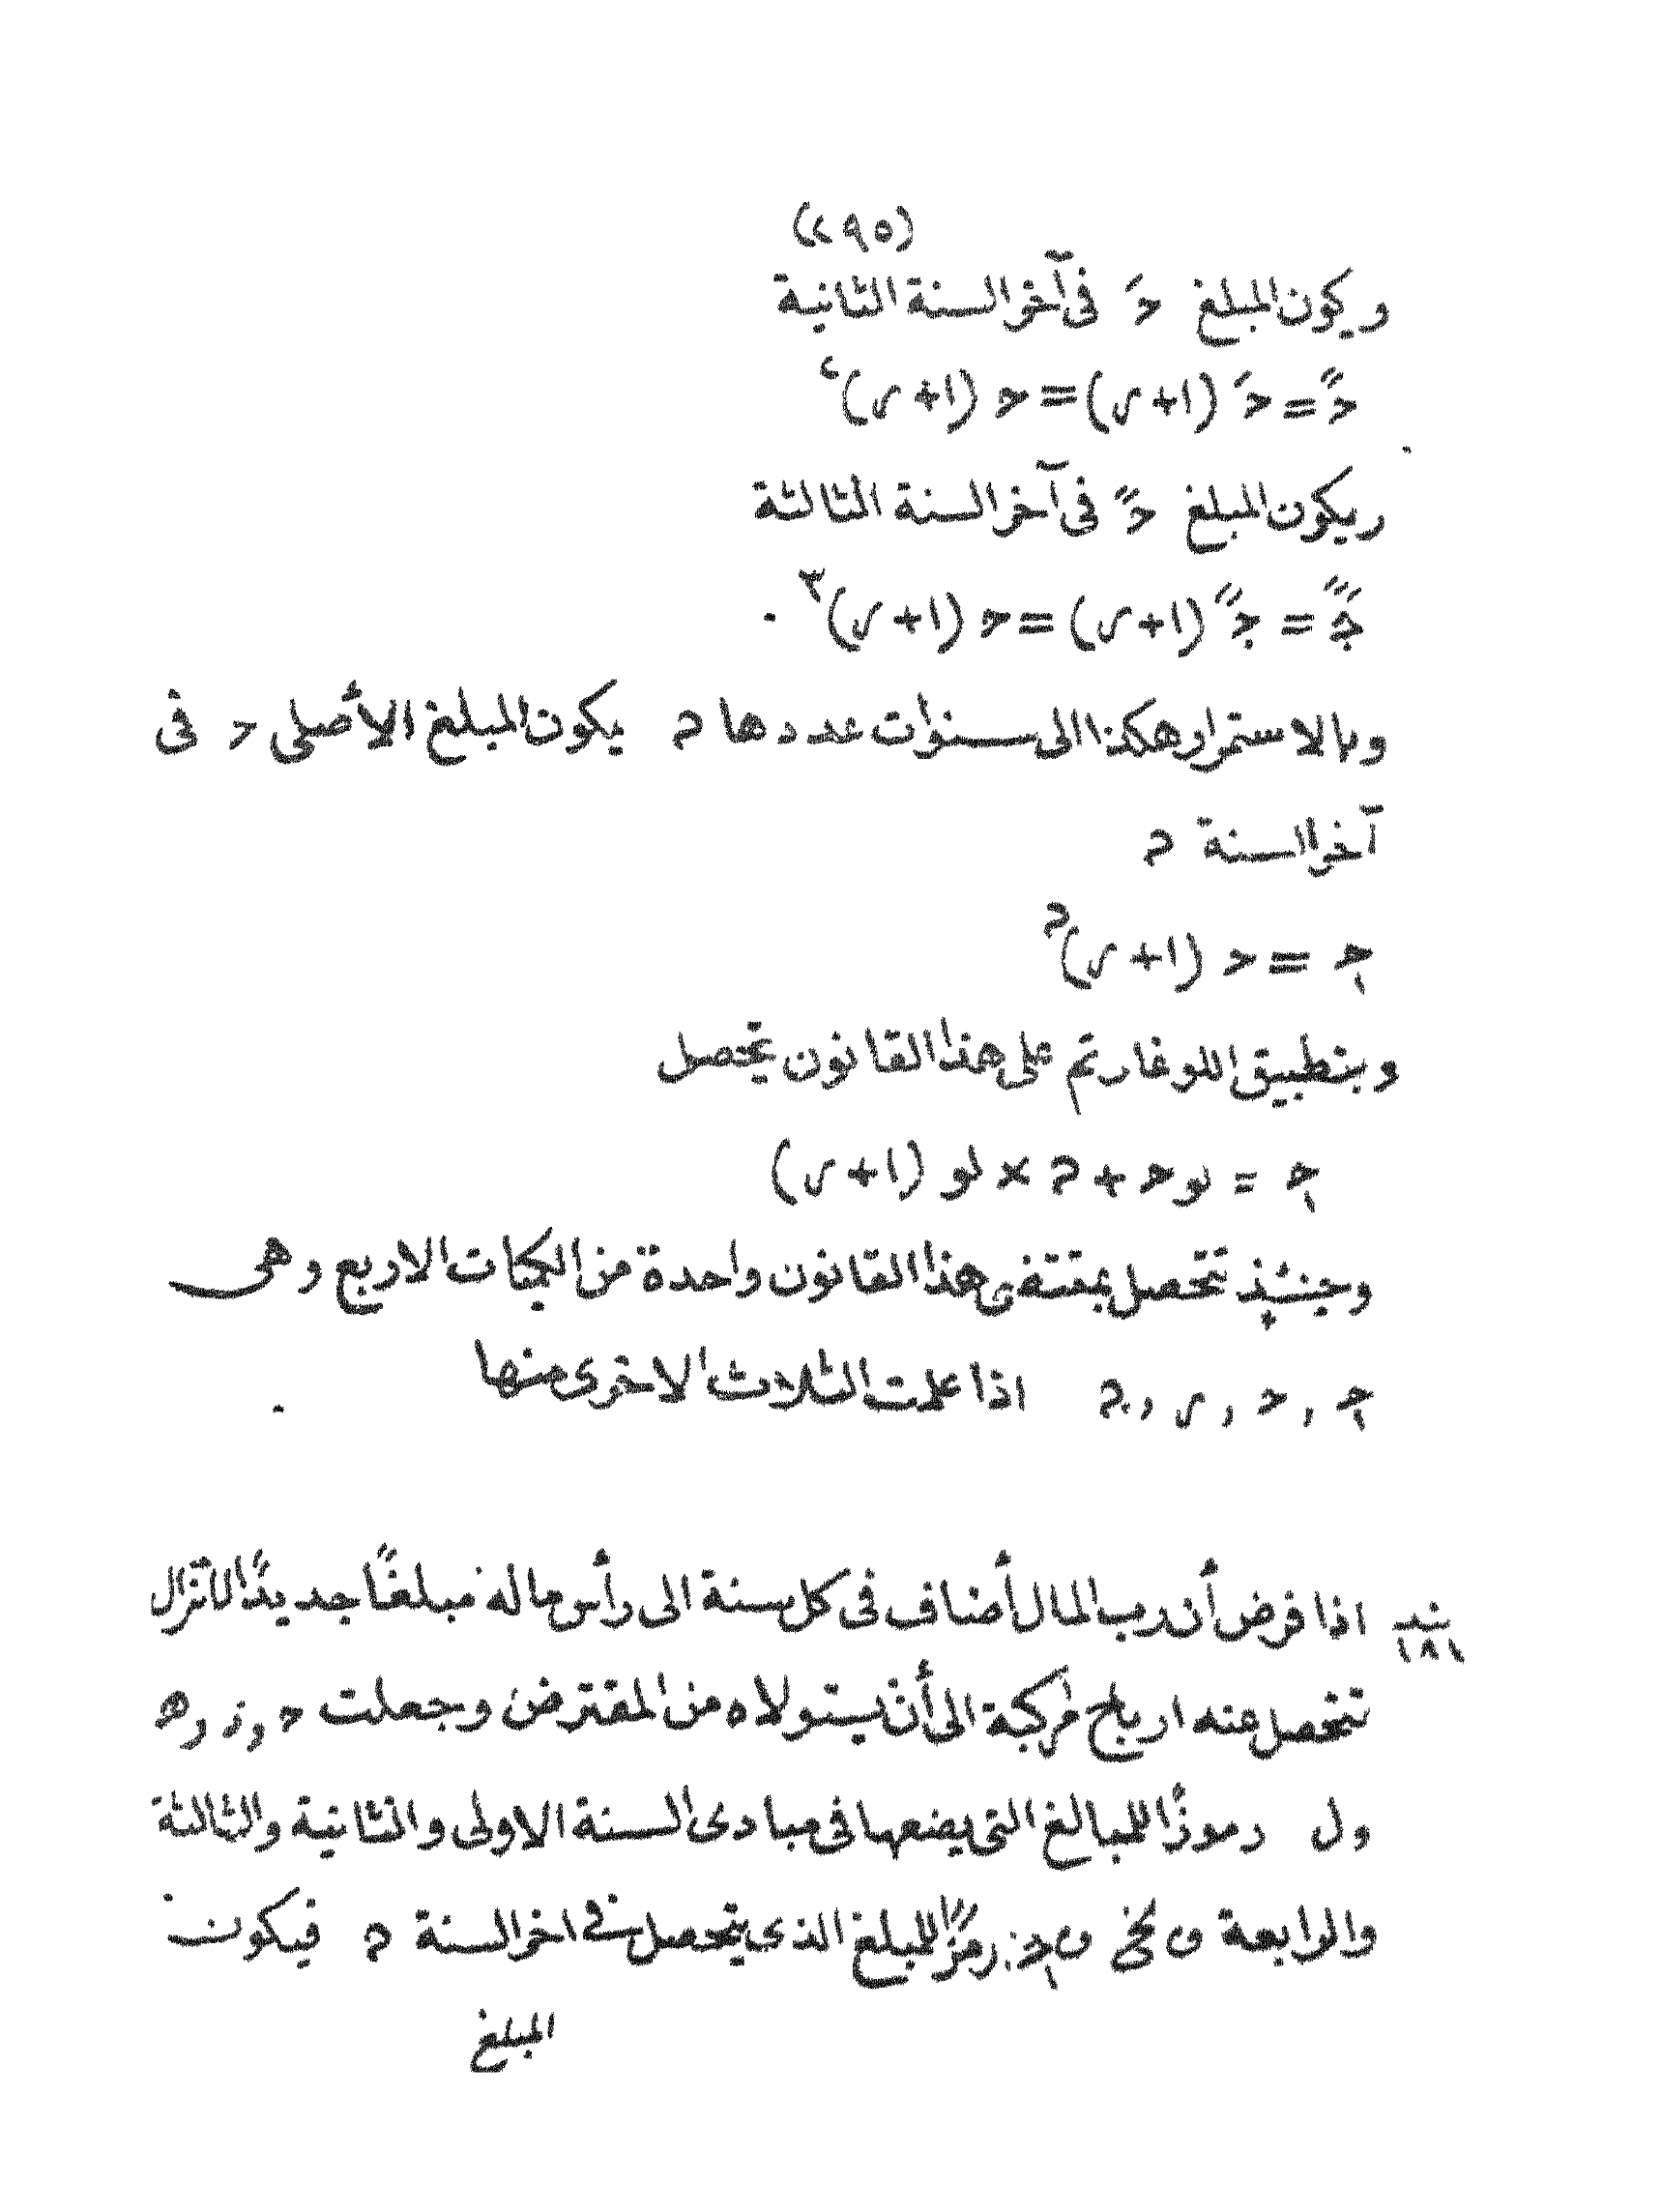 (٢٩٥)
ويكون المبلغ حَ فى آخر السنة الثانية
حً = حَ (١+ر) = ح (١+ر)٢
ويكون المبلغ حً فى آخر السنة الثالثة
جًَ = جً (١+ر) = ح (١+ر)٣
وبالاستمرار هكذا الى سنوات عددها م يكون المبلغ الأصلى ح فى
آخر السنة م
حـ١ = ح (١+ر)م
وبتطبيق اللوغارتم على هذا القانون يتحصل
حـ١ = لو ح + م × لو (١+ر)
وحينئذ تتحصل بمقتضى هذا القانون واحدة من الكميات الاربع وهى
حـ١ , ح , ر , م اذا علمت الثلاث الاخرى منها
بند ١٨١ اذا فرض أن رب المال أضاف فى كل سنة الى رأس ماله مبلغًا جديدًا لاتزال
تتحصل عنه ارباح مركبة الى أن يستولاه من المقترض وجعلت ح و ز و ه
و ل رموزًا للمبالغ التى يضعها فى مبادى السنة الاولى والثانية والثالثة
والرابعة رمزًا للمبلغ الذى يتحصل فى اخر السنة م فيكون
المبلغ